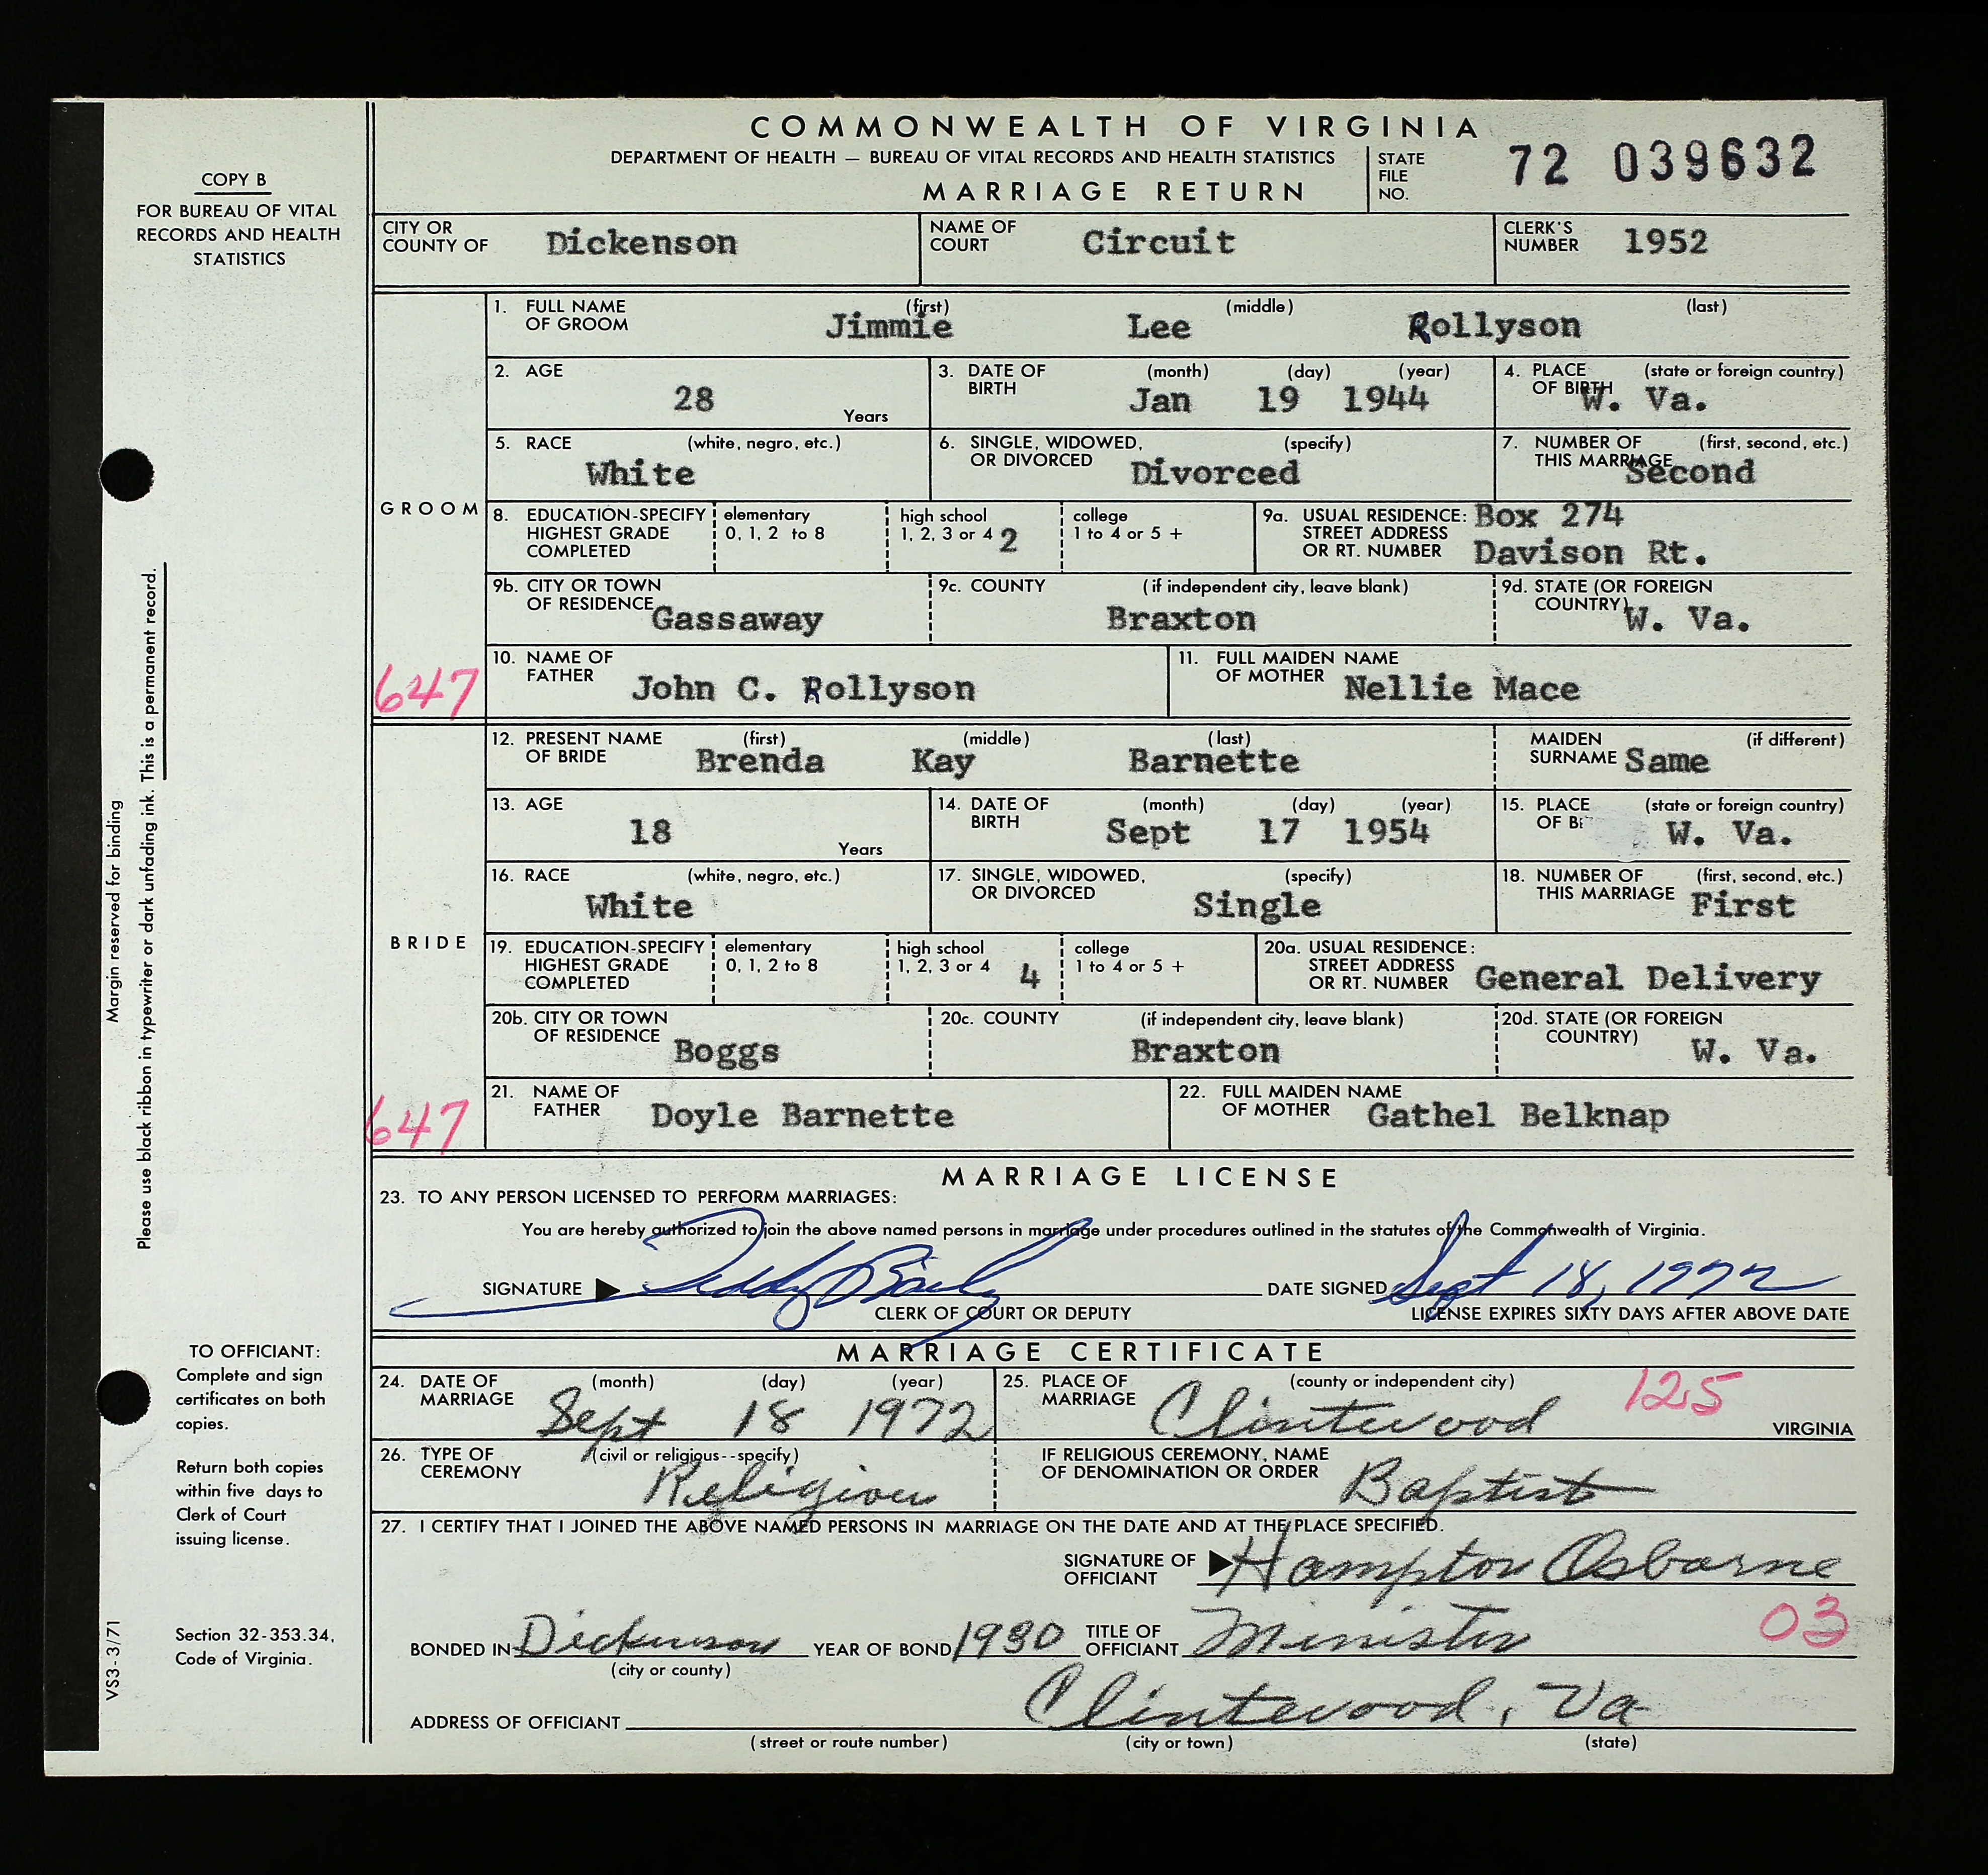 COMMONWEALTH OF VIRGINIA
DEPARTMENT OF HEALTH — BUREAU OF VITAL RECORDS AND HEALTH STATISTICS
MARRIAGE RETURN
STATE FILE NO. 72 039632
COPY B
FOR BUREAU OF VITAL
RECORDS AND HEALTH
STATISTICS
CITY OR COUNTY OF Dickenson NAME OF COURT Circuit CLERK'S NUMBER 1952
GROOM
1. FULL NAME OF GROOM (first) Jimmie (middle) Lee (last) Rollyson
2. AGE 28 Years 3. DATE OF BIRTH (month) Jan (day) 19 (year) 1944 4. PLACE OF BIRTH (state or foreign country) W. Va.
5. RACE (white, negro, etc.) White 6. SINGLE, WIDOWED, OR DIVORCED (specify) Divorced 7. NUMBER OF THIS MARRIAGE (first, second, etc.) Second
8. EDUCATION-SPECIFY HIGHEST GRADE COMPLETED elementary 0, 1, 2 to 8 high school 1, 2, 3 or 4 2 college 1 to 4 or 5 + 9a. USUAL RESIDENCE: STREET ADDRESS OR RT. NUMBER Box 274 Davison Rt.
9b. CITY OR TOWN OF RESIDENCE Gassaway 9c. COUNTY (if independent city, leave blank) Braxton 9d. STATE (OR FOREIGN COUNTRY) W. Va.
647
10. NAME OF FATHER John C. Rollyson 11. FULL MAIDEN NAME OF MOTHER Nellie Mace
BRIDE
12. PRESENT NAME OF BRIDE (first) Brenda (middle) Kay (last) Barnette MAIDEN SURNAME (if different) Same
13. AGE 18 Years 14. DATE OF BIRTH (month) Sept (day) 17 (year) 1954 15. PLACE OF Bi (state or foreign country) W. Va.
16. RACE (white, negro, etc.) White 17. SINGLE, WIDOWED, OR DIVORCED (specify) Single 18. NUMBER OF THIS MARRIAGE (first, second, etc.) First
19. EDUCATION-SPECIFY HIGHEST GRADE COMPLETED elementary 0, 1, 2 to 8 high school 1, 2, 3 or 4 4 college 1 to 4 or 5 + 20a. USUAL RESIDENCE: STREET ADDRESS OR RT. NUMBER General Delivery
20b. CITY OR TOWN OF RESIDENCE Boggs 20c. COUNTY (if independent city, leave blank) Braxton 20d. STATE (OR FOREIGN COUNTRY) W. Va.
647
21. NAME OF FATHER Doyle Barnette 22. FULL MAIDEN NAME OF MOTHER Gathel Belknap
MARRIAGE LICENSE
23. TO ANY PERSON LICENSED TO PERFORM MARRIAGES:
You are hereby authorized to join the above named persons in marriage under procedures outlined in the statutes of the Commonwealth of Virginia.
SIGNATURE DATE SIGNED Sept 18, 1972
CLERK OF COURT OR DEPUTY LICENSE EXPIRES SIXTY DAYS AFTER ABOVE DATE
MARRIAGE CERTIFICATE
24. DATE OF MARRIAGE (month) Sept (day) 18 (year) 1972 25. PLACE OF MARRIAGE (county or independent city) Clintwood 125 VIRGINIA
26. TYPE OF CEREMONY (civil or religious--specify) Religious IF RELIGIOUS CEREMONY, NAME OF DENOMINATION OR ORDER Baptist
27. I CERTIFY THAT I JOINED THE ABOVE NAMED PERSONS IN MARRIAGE ON THE DATE AND AT THE PLACE SPECIFIED.
SIGNATURE OF OFFICIANT Hampton Osborne
BONDED IN Dickenson (city or county) YEAR OF BOND 1930 TITLE OF OFFICIANT Minister 03
ADDRESS OF OFFICIANT Clintwood, Va
(street or route number) (city or town) (state)
Margin reserved for binding
Please use black ribbon in typewriter or dark unfading ink. This is a permanent record.
TO OFFICIANT:
Complete and sign
certificates on both
copies.
Return both copies
within five days to
Clerk of Court
issuing license.
Section 32-353.34,
Code of Virginia.
VS3-3/71